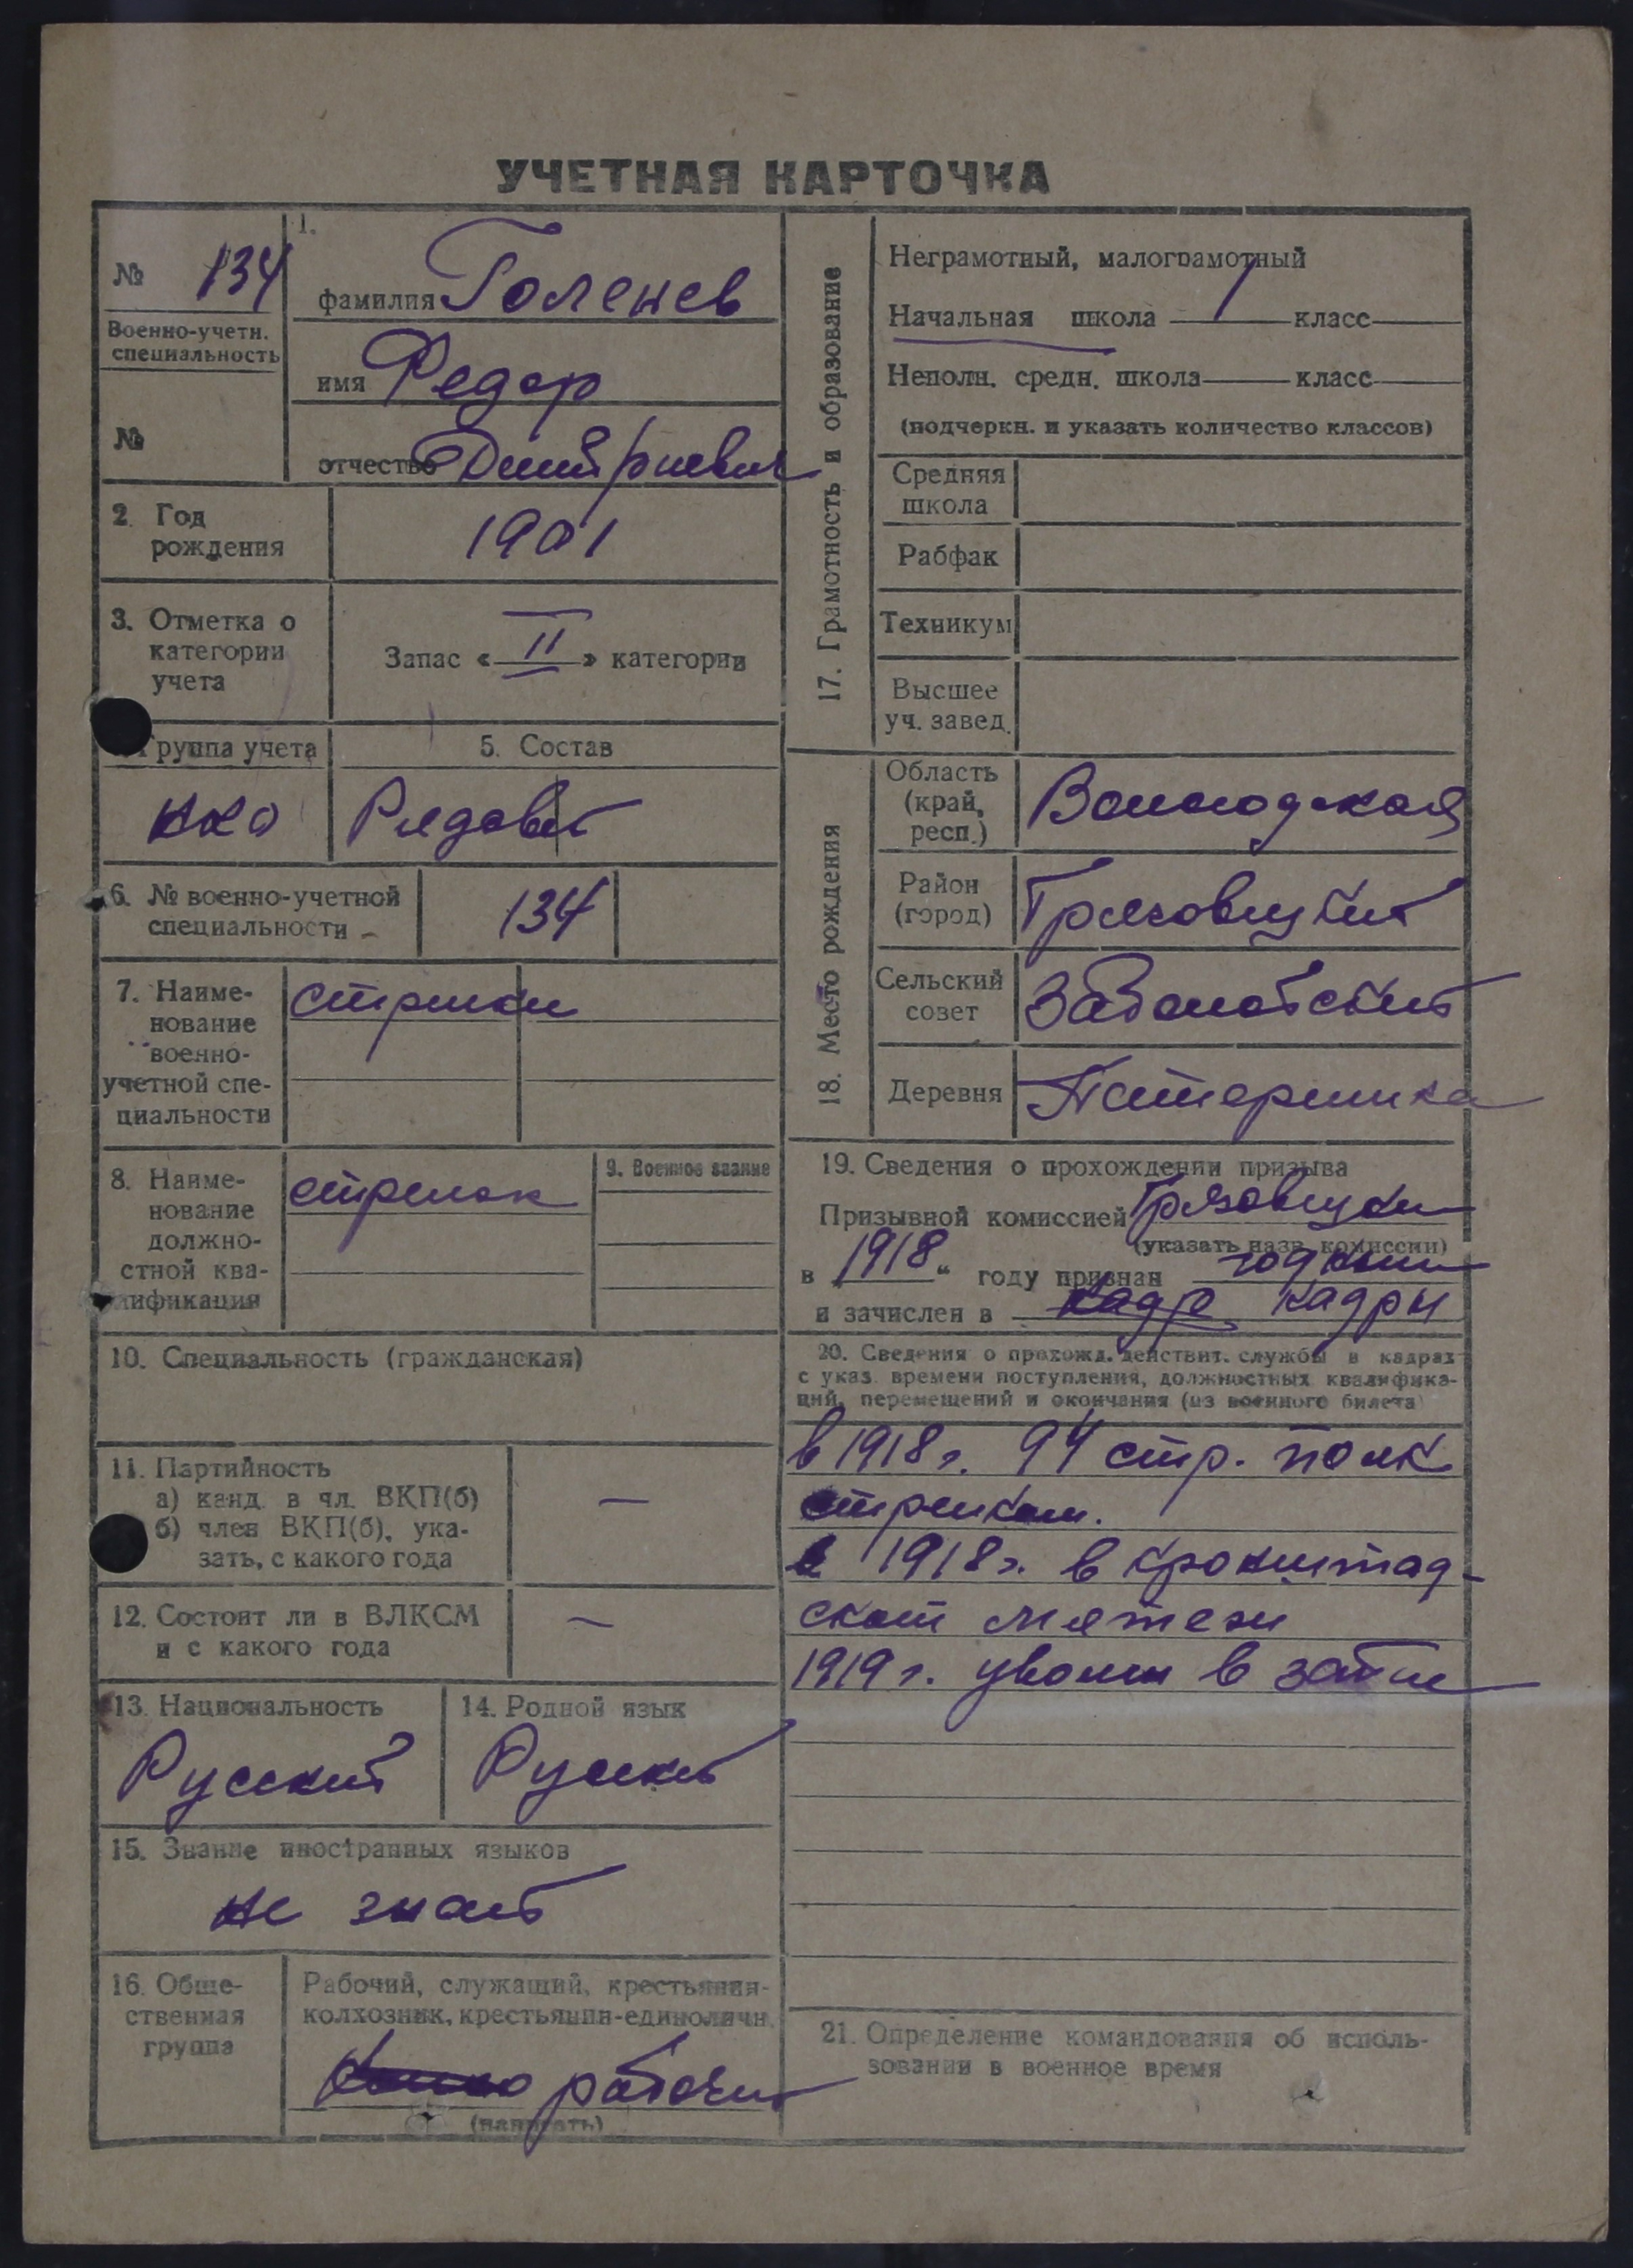 УЧЕТНАЯ КАРТОЧКА
№ 134
Военно-учетн.
специальность
№
1.
фамилия Голенев
имя Федор
отчество Дмитриевич
2. Год
рождения
1901
3. Отметка о
категории
учета
Запас « II » категории
Группа учета
ККА
5. Состав
Рядовой
6. № военно-учетной
специальности
134
7. Наиме-
нование
военно-
учетной спе-
циальности
стрелки
8. Наиме-
нование
должно-
стной ква-
лификация
стрелок
9. Военное звание
10. Специальность (гражданская)
11. Партийность
а) канд. в чл. ВКП(б)
б) член ВКП(б), ука-
зать, с какого года
—
12. Состоит ли в ВЛКСМ
и с какого года
—
13. Национальность
Русский
14. Родной язык
Русский
15. Знание иностранных языков
не знает
16. Обще-
ственная
группа
Рабочий, служащий, крестьянин-
колхозник, крестьянин-единоличн.
рабочий
(написать)
17. Грамотность и образование
Неграмотный, малограмотный
Начальная школа 1 класс
Неполн. средн. школа класс
(подчеркн. и указать количество классов)
Средняя
школа
Рабфак
Техникум
Высшее
уч. завед.
18. Место рождения
Область
(край,
респ.)
Вологодская
Район
(город)
Грязовецкий
Сельский
совет
Деревня
19. Сведения о прохождении призыва
Призывной комиссией Грязовецкой
(указать назв. комиссии)
в 1918 " году признан годным
и зачислен в кадр кадры
20. Сведения о прохожд. действит. службы в кадрах
с указ. времени поступления, должностных квалифика-
ций, перемещений и окончания (из военного билета)
в 1918 г. 94 стр. полк
стрелком.
в 1918 г. в кронштад-
ском мятежи
1919 г. уволен в запас
21. Определение командования об исполь-
зовании в военное время